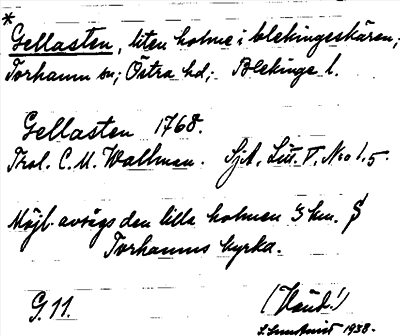 *
Gellasten, liten holme i blekingeskären;
Torhamn sn; Östra hd; Blekinge l.
Gellasten 1768.
Trol. C. U. Wallman. Sjk. Litt. V, No 1,5.
Möjl. avsågs den lilla holmen 3 km. S
Torhamns kyrka.
G. 11.
1938.